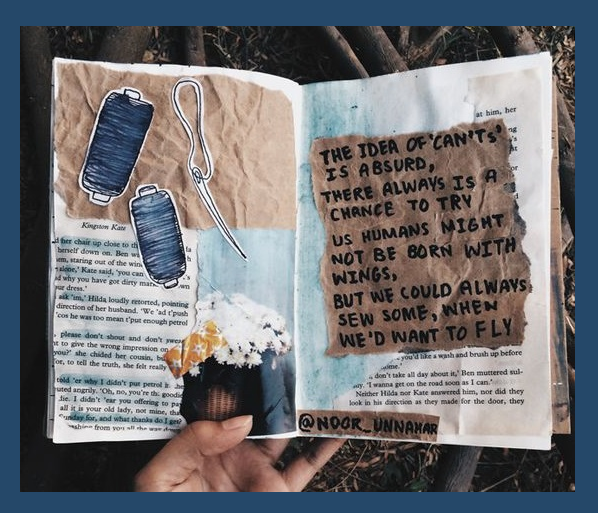 Kingston Kate
her chair up close to th
herself down on. Ben wa
em, staring out of the wind
alone,' Kate said, 'you can
d why you have got dirty mar
ur dress.'
ask 'im,' Hilda loudly retorted, pointing
direction of her husband. 'We 'ad t'push
'cos he was too mean t'put enough petrol
please don't shout and don't swe
t to give the wrong impression on
you?' she chided her cousin, bu
or, to tell the truth, she felt really
told 'er why I didn't put petrol i
euted angrily. 'Oh, no, you're th. goodie
die. I didn't 'ear you offering to pa
all it is your old lady, not mine, tha
Sunday for, and what thanks do I get?
ashing from you all the way dow
at him, her
THE IDEA OF 'CAN'TS'
IS ABSURD,
THERE ALWAYS IS A
CHANCE TO TRY
US HUMANS MIGHT
NOT BE BORN WITH
WINGS,
BUT WE COULD ALWAYS
SEW SOME, WHEN
WE'D WANT TO FLY
you'd like a wash and brush up before
ome.'
don't take all day about it,' Ben muttered sul-
ly. 'I wanna get on the road soon as I can.'
Neither Hilda nor Kate answered him, nor did they
look in his direction as they made for the door, they
@NOOR_UNNAHAR